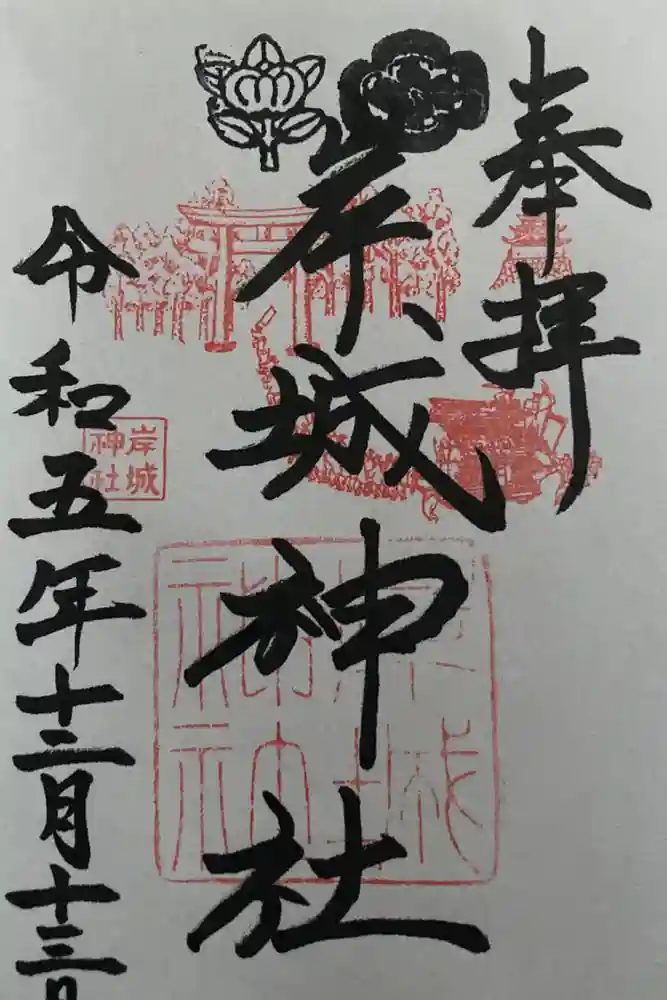 奉拝
岸城神社
令和五年十二月十三日
岸城
神社
岸城
神社